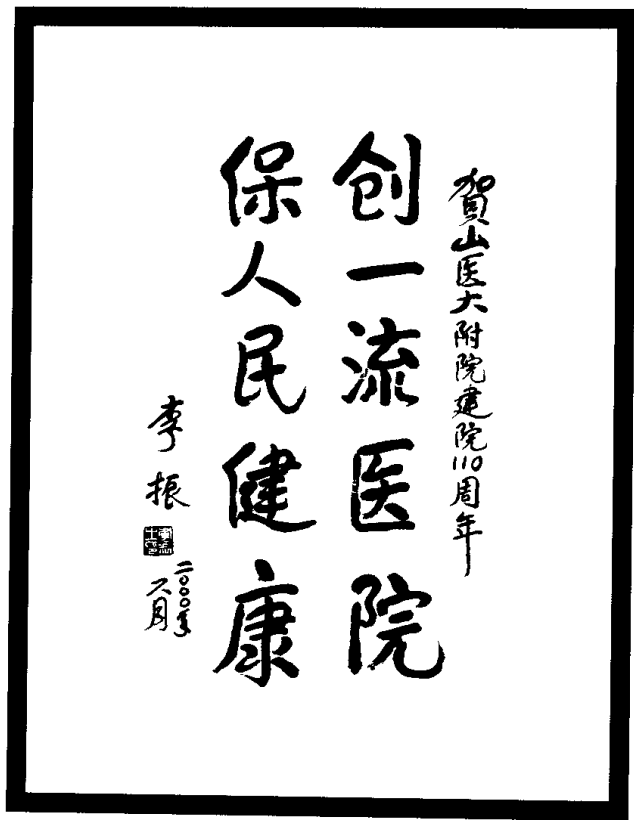 賀山医大附院建院110周年
创一流医院
保人民健康
李振
二〇〇〇年
六月